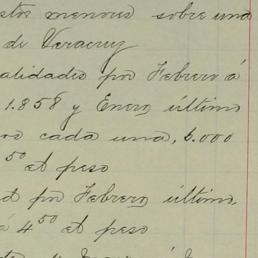 stos menores sobre una
de Veracruz
alidades por Febrero á
1.858 y Enero último
os cada una, 6.000
50 el peso
d por Febrero último
á 4 50 el peso